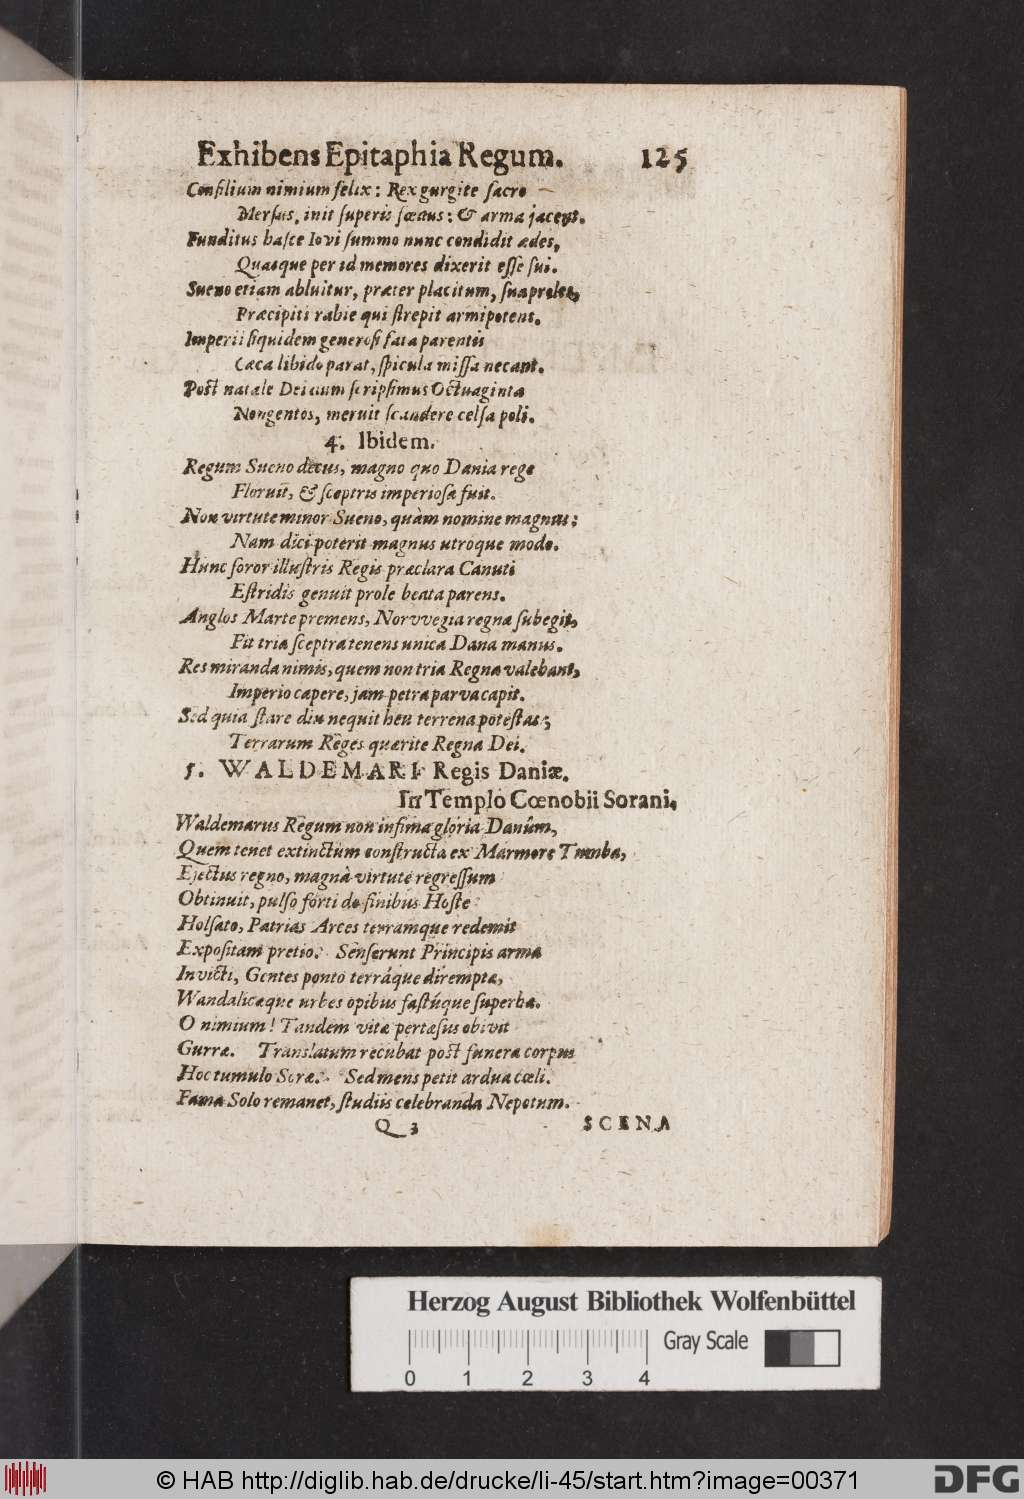 Exhibens Epitaphia Regum. 125
Consilium nimium felix: Rex gurgite sacro
Mersus, init superis fœtus: & arma jacent.
Funditus hasce Iovi summo nunc condidit ædes,
Quasque per id memores dixerit esse sui.
Sueno etiam abluitur, præter placitum, sua proles,
Præcipiti rabie qui strepit armipotens.
Imperii siquidem generosi fata parentis
Cæca libido parat, spicula missa necant.
Post natale Dei cum scripsimus Octuaginta
Nongentos, meruit scandere celsa poli.
4. Ibidem.
Regum Sueno decus, magno quo Dania rege
Floruit, & sceptris imperiosa fuit.
Non virtute minor Sueno, quàm nomine magnus;
Nam dici poterit magnus utroque modo.
Hunc soror illustris Regis præclara Canuti
Estridis genuit prole beata parens.
Anglos Marte premens, Norvvegia regna subegit,
Fit tria sceptra tenens unica Dana manus.
Res miranda nimis, quem non tria Regna valebant,
Imperio capere, jam petra parva capit.
Sed quia stare diu nequit heu terrena potestas;
Terrarum Reges quærite Regna Dei.
5. WALDEMARI Regis Daniæ.
In Templo Cœnobii Sorani.
Waldemarus Regum non infima gloria Danûm,
Quem tenet extinctum constructa ex Marmore Tumba,
Ejectus regno, magnà virtute regressum
Obtinuit, pulso forti de finibus Hoste
Holsato, Patrias Arces terramque redemit
Expositam pretio. Senserunt Principis arma
Invicti, Gentes ponto terráque dirempta,
Wandalicæque urbes opibus fastúque superba.
O nimium! Tandem vitæ pertæsus obivit
Gurræ. Translatum recubat post funera corpus
Hoc tumulo Soræ. Sed mens petit ardua cœli.
Fama Solo remanet, studiis celebranda Nepotum.
Q 3 SCENA
Herzog August Bibliothek Wolfenbüttel
Gray Scale
0 1 2 3 4
© HAB http://diglib.hab.de/drucke/li-45/start.htm?image=00371
DFG